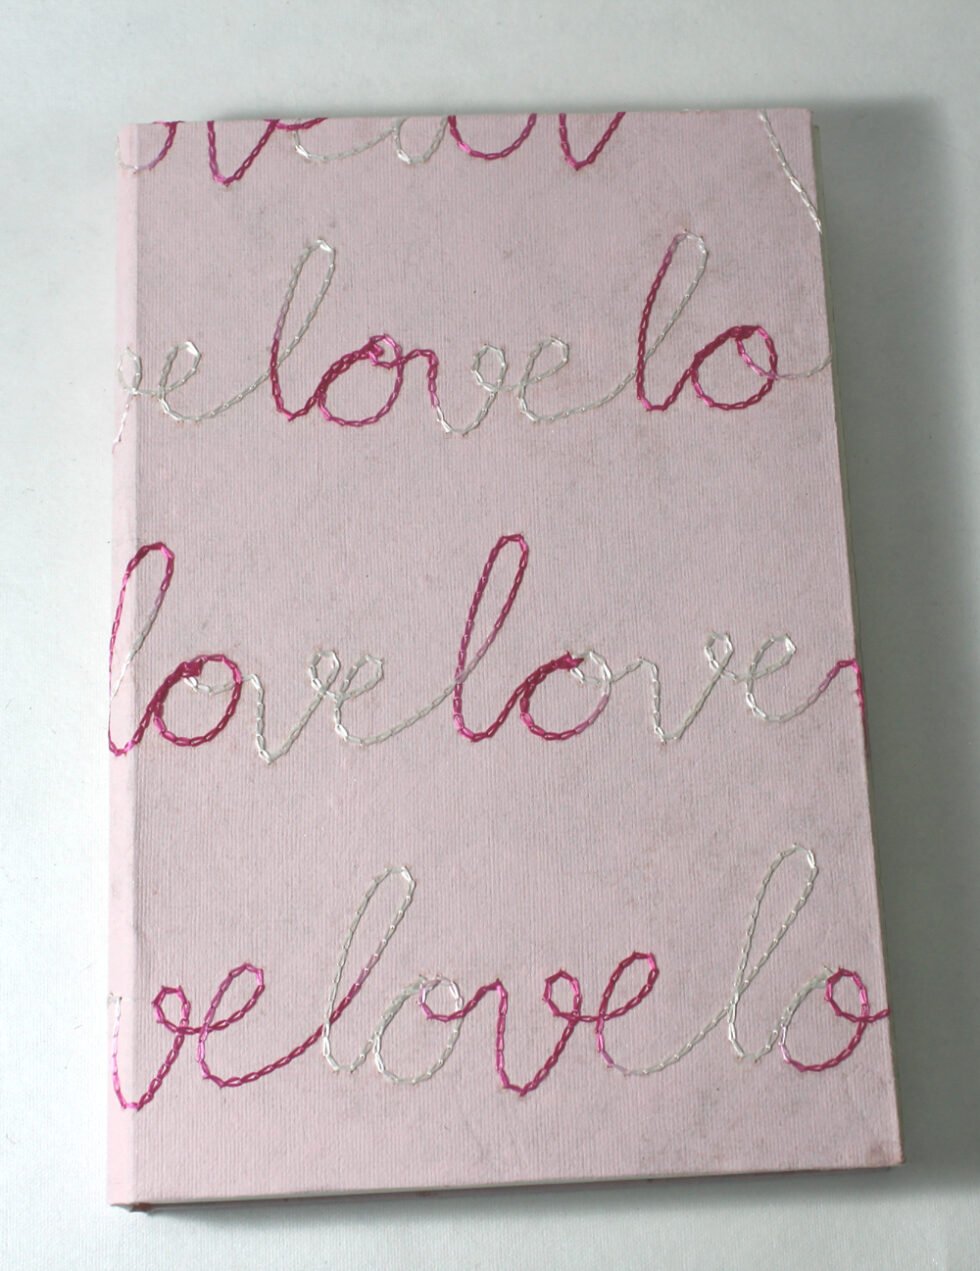 ove lov
e love lo
love love
ve love lo